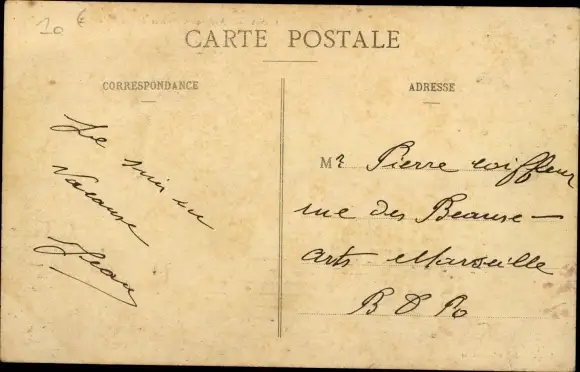 10 €
CARTE POSTALE
CORRESPONDANCE
Je suis en
Vacanse
Jean
ADRESSE
Mr Pierre coiffeur
rue des Beause-
arts Marseille
B D R